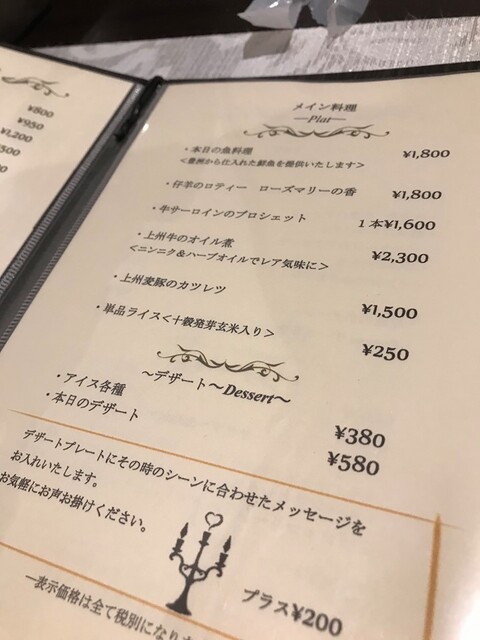 ¥800
¥950
¥1,200
メイン料理
—Plat—
・本日の魚料理 ¥1,800
<豊洲から仕入れた鮮魚を提供いたします>
・仔羊のロティー ローズマリーの香 ¥1,800
・牛サーロインのブロシェット 1本¥1,600
・上州牛のオイル煮 ¥2,300
<ニンニク&ハーブオイルでレア気味に>
・上州麦豚のカツレツ ¥1,500
・単品ライス<十穀発芽玄米入り> ¥250
～デザート～Dessert～
・アイス各種 ¥380
・本日のデザート ¥580
デザートプレートにその時のシーンに合わせたメッセージを
お入れいたします。
お気軽にお声お掛けください。
プラス¥200
—表示価格は全て税別になりま